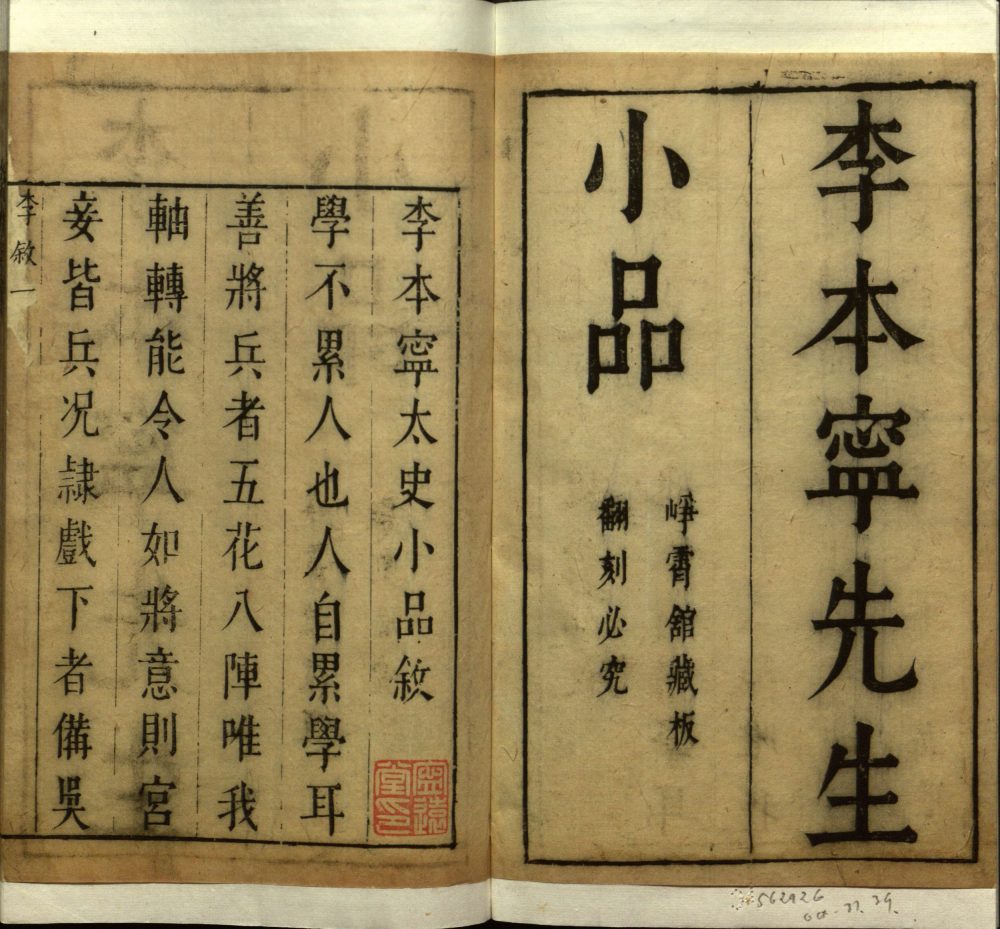 李本寧先生
小品
崢霄館藏板
翻刻必究
李本寧太史小品敘
學不累人也人自累學耳
善將兵者五花八陣唯我
軸轉能令人如將意則宮
妾皆兵况隷戲下者備吳
李敘一
寧遠堂印
562926